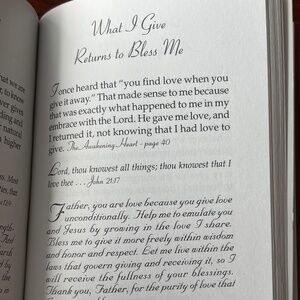 What I Give
Returns to Bless Me
I once heard that "you find love when you
give it away." That made sense to me because
that was exactly what happened to me in my
embrace with the Lord. He gave me love, and
I returned it, not knowing that I had love to
give. The Awakening Heart - page 40
Lord, thou knowest all things; thou knowest that I
love thee . . . John 21:17
Father, you are love because you give love
unconditionally. Help me to emulate you
and Jesus by growing in the love I share.
Bless me to give it more freely within wisdom
and honor and respect. Let me live within the
laws that govern giving and receiving it, so I
will receive the fullness of your blessings.
Thank you, Father, for the purity of love that